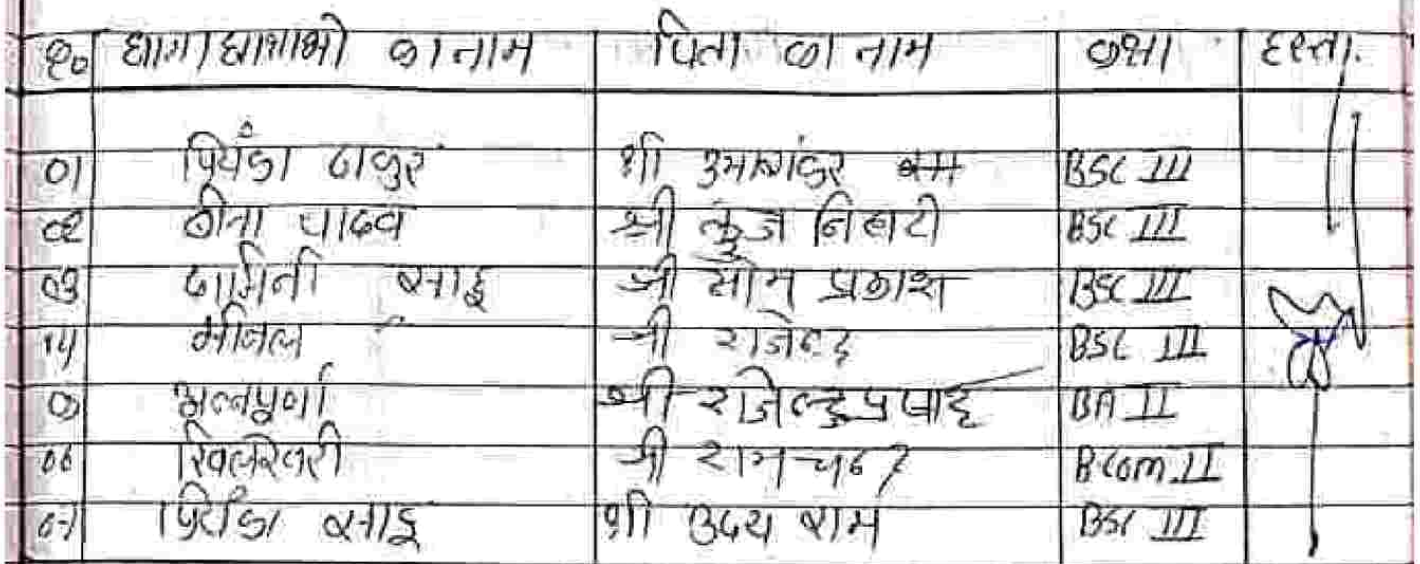 क्र० छात्र/छात्राओं का नाम पिता का नाम कक्षा हस्ता.
01 प्रियंका ठाकुर श्री उमाशंकर राम BSC III
02 यादव श्री कुंज बिहारी BSC III
03 दामिनी साहू श्री सोम प्रकाश BSC III
04 श्री राजेन्द्र BSC III
05 अन्नपूर्णा श्री राजेन्द्र प्रसाद BA II
06 खिलेश्वरी श्री रामचन्द्र B Com II
07 प्रियंका साहू श्री उदय राम BSC III